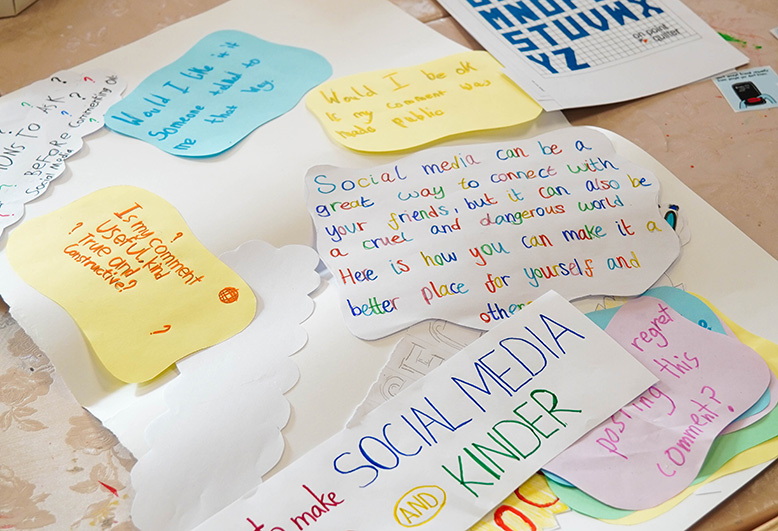 MNOPQR
STUVWX
YZ
on point
quilter
? ? ?
IONS TO ASK ?
BEFORE Commenting ON
Social Media
?
Would I like it if
Someone said to
me that
Would I be OK
is my comment was
made Public
Is my comment
Useful, kind
True and
Constructive?
? ?
?
Social media can be a
great way to connect with
your friends, but it can also be
a cruel and dangerous world.
Here is how you can make it a
better place for yourself and
others
to make SOCIAL MEDIA
AND KINDER
regret
posting this
comment?